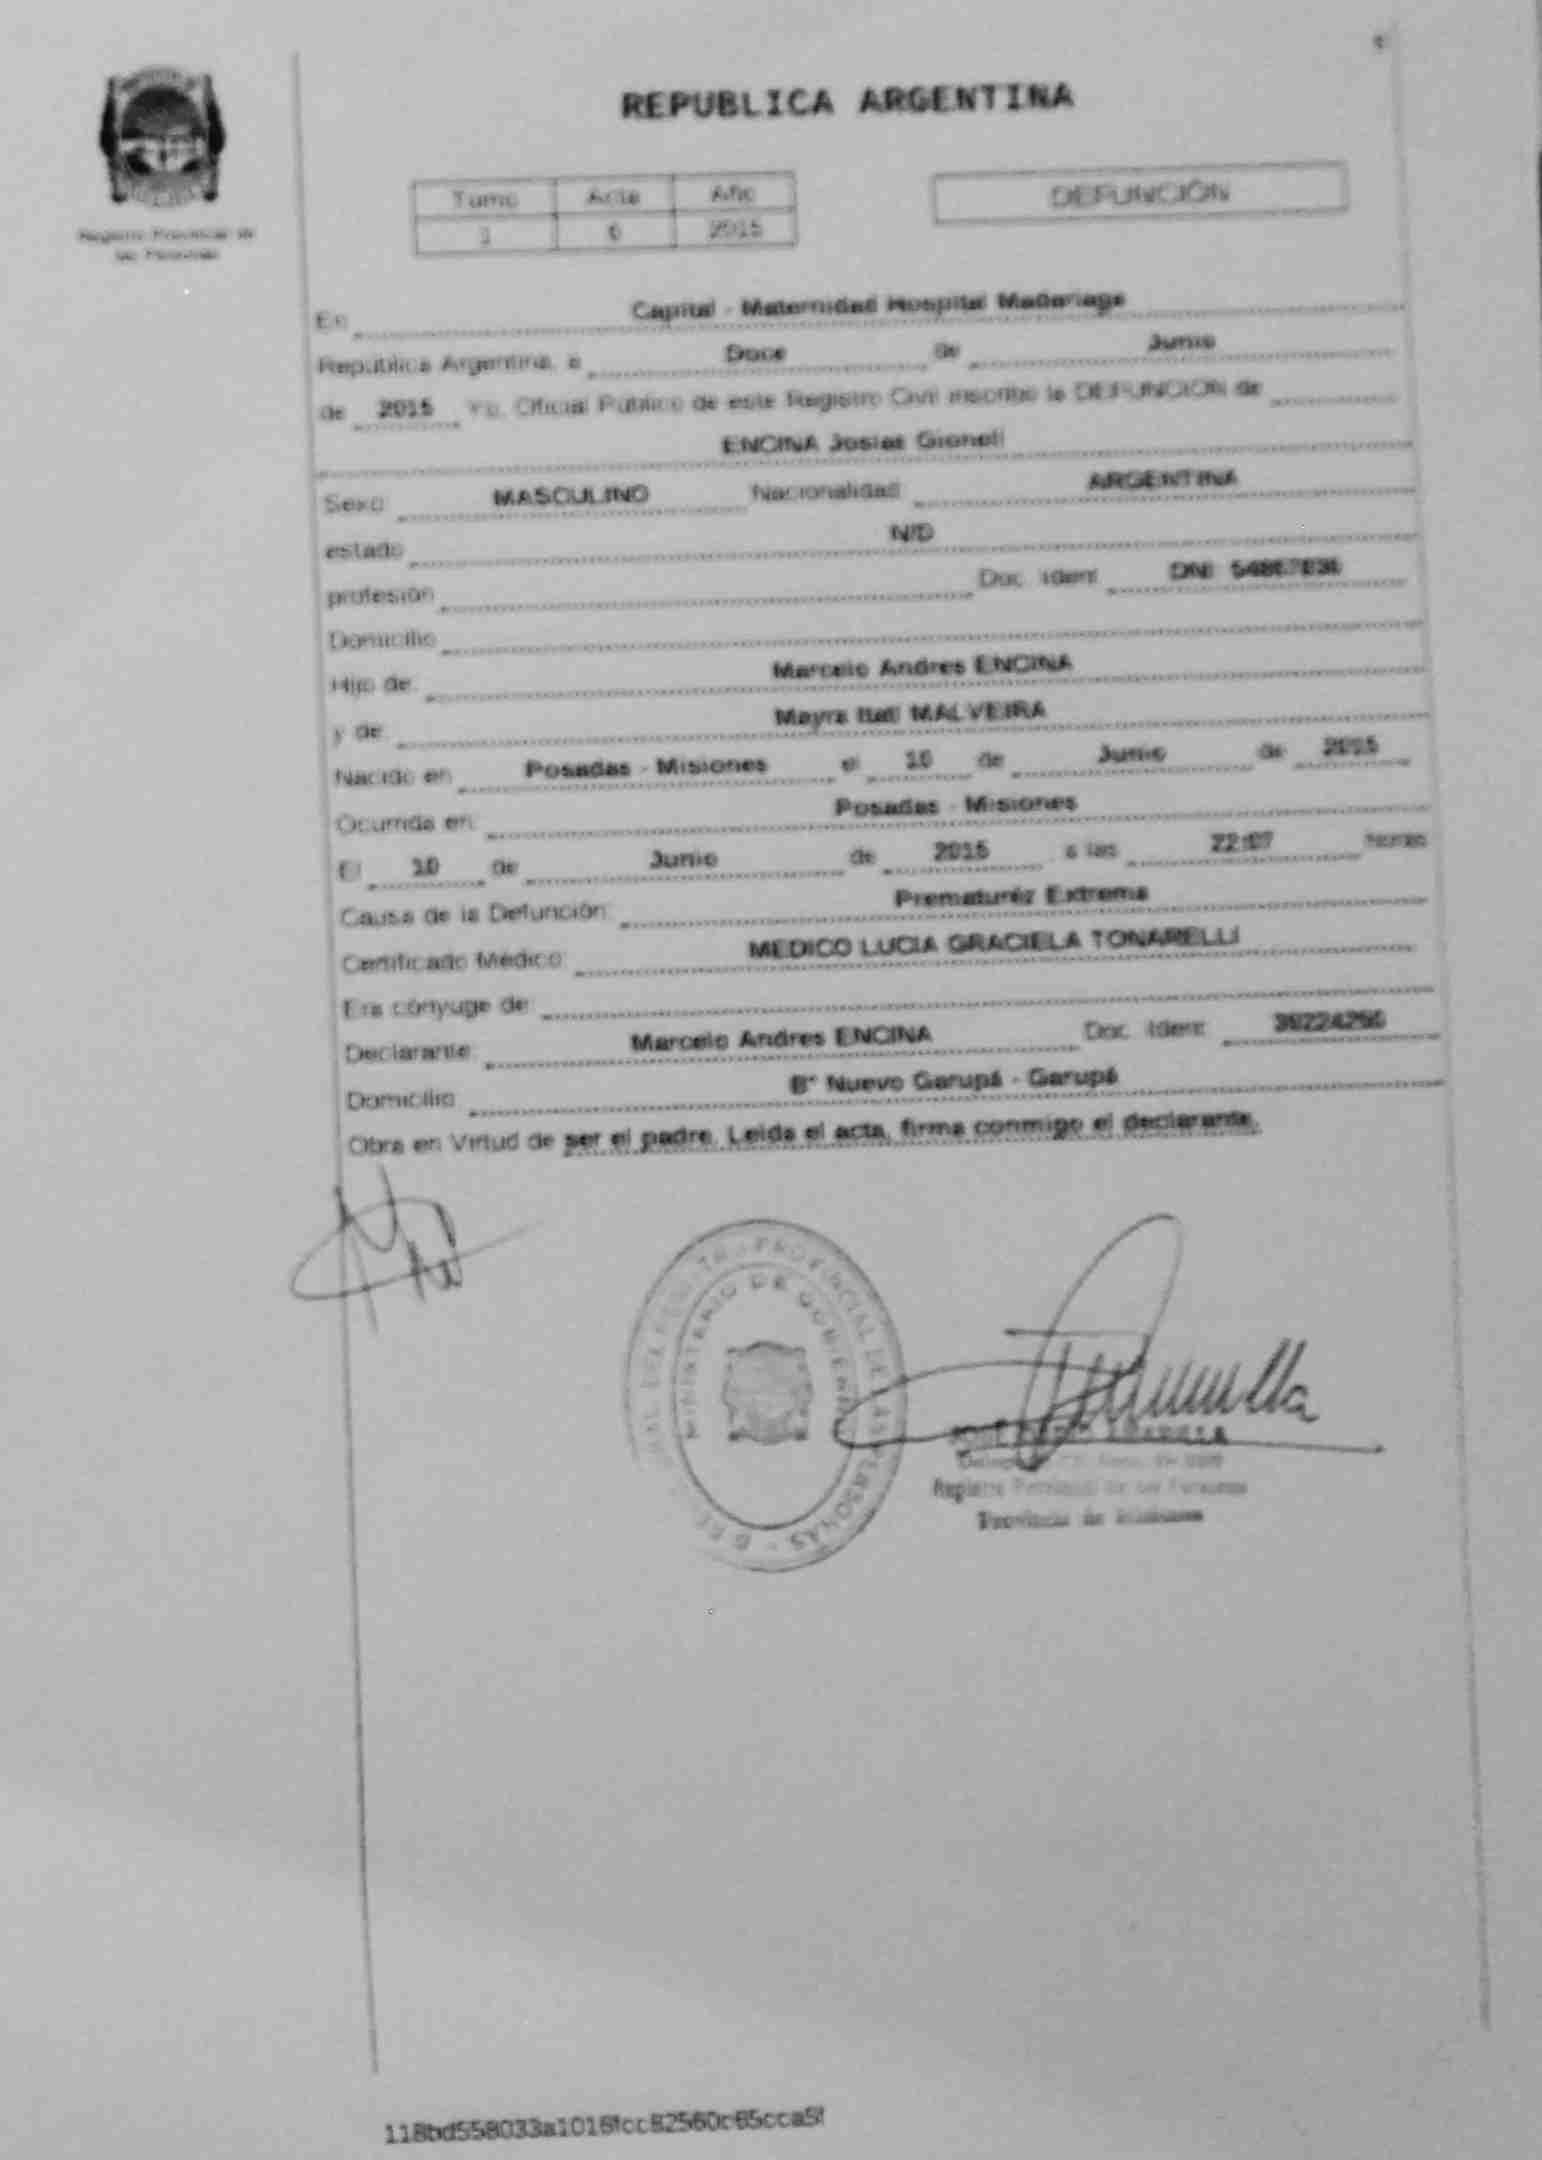 REPUBLICA ARGENTINA
Tomo Acta Año
1 6 2015
DEFUNCIÓN
Registro Provincial de
las Personas
En Capital - Maternidad Hospital Madariaga
República Argentina, a Doce de Junio
de 2015 Yo, Oficial Público de este Registro Civil inscribo la DEFUNCION de
ENCINA Josias Gionel
Sexo MASCULINO Nacionalidad ARGENTINA
estado N/D
profesión Doc. Ident. DNI
Domicilio
Hijo de: Marcelo Andres ENCINA
y de: Mayra Itati MALVEIRA
Nacido en Posadas - Misiones el 10 de Junio de 2015
Ocurrida en: Posadas - Misiones
El 10 de Junio de 2015 a las 22:07 horas
Causa de la Defunción: Prematuréz Extrema
Certificado Médico: MEDICO LUCIA GRACIELA TONARELLI
Era cónyuge de:
Declarante: Marcelo Andres ENCINA Doc. Ident.
Domicilio B° Nuevo Garupá - Garupá
Obra en Virtud de ser el padre. Leida el acta, firma conmigo el declarante.
PROVINCIAL DE LAS PERSONAS
MINISTERIO DE GOBIERNO
JOSE
Registro Provincial de las Personas
Provincia de Misiones
118bd558033a1016fcc82560c65cca5f